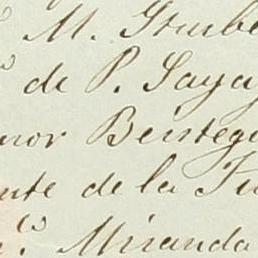 M. Iturbe
de P. Saya
nor Beistegu
nte de la Tu
Miranda